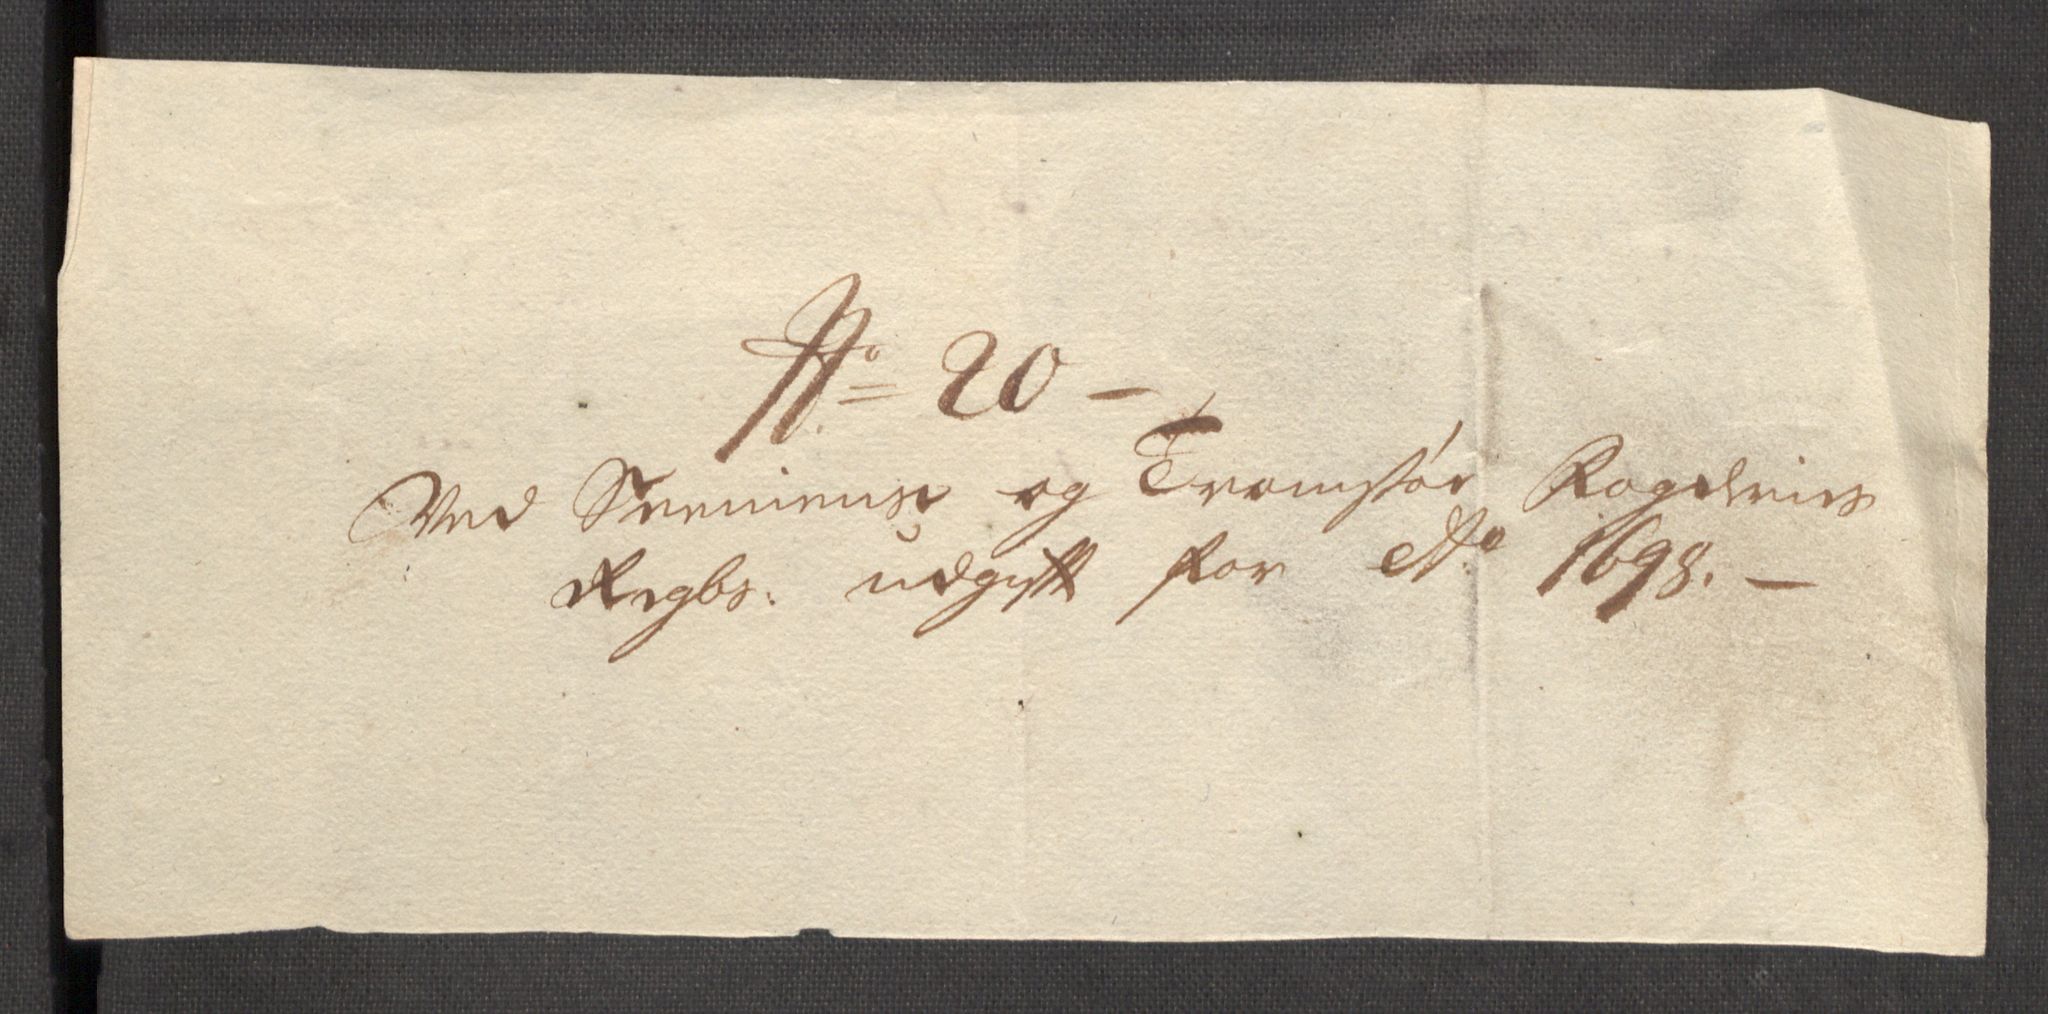 No= 20 -
Ved Senniens og Tromsøe Fogderies
Regbs: udgifft for Ao 1698. -